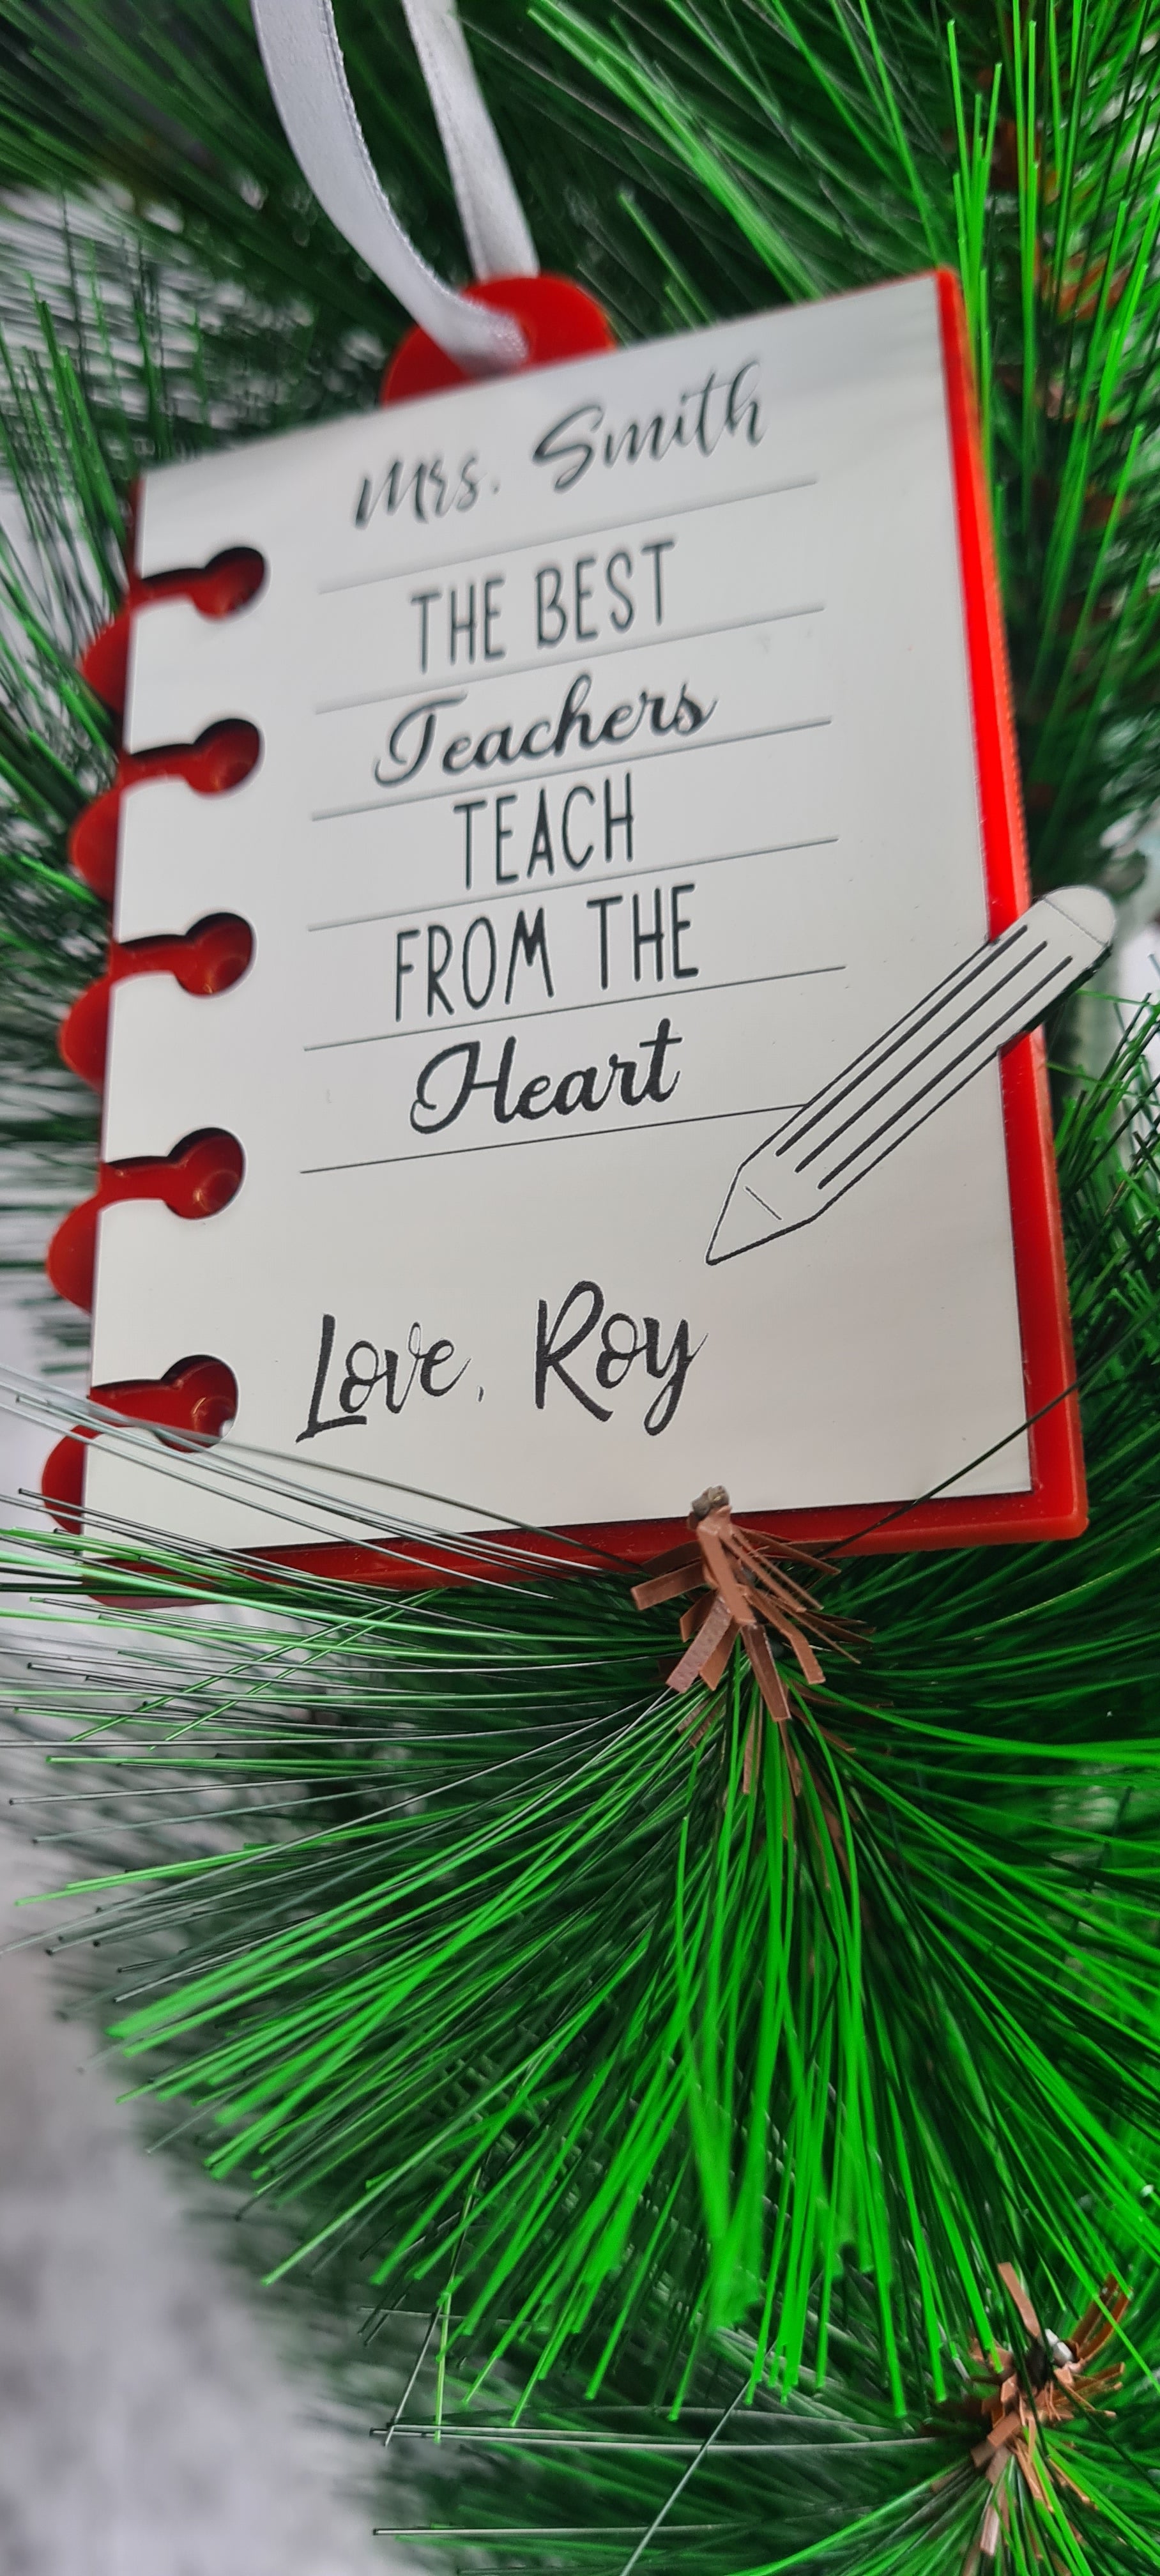 Mrs. Smith
THE BEST
Teachers
TEACH
FROM THE
Heart
Love, Roy